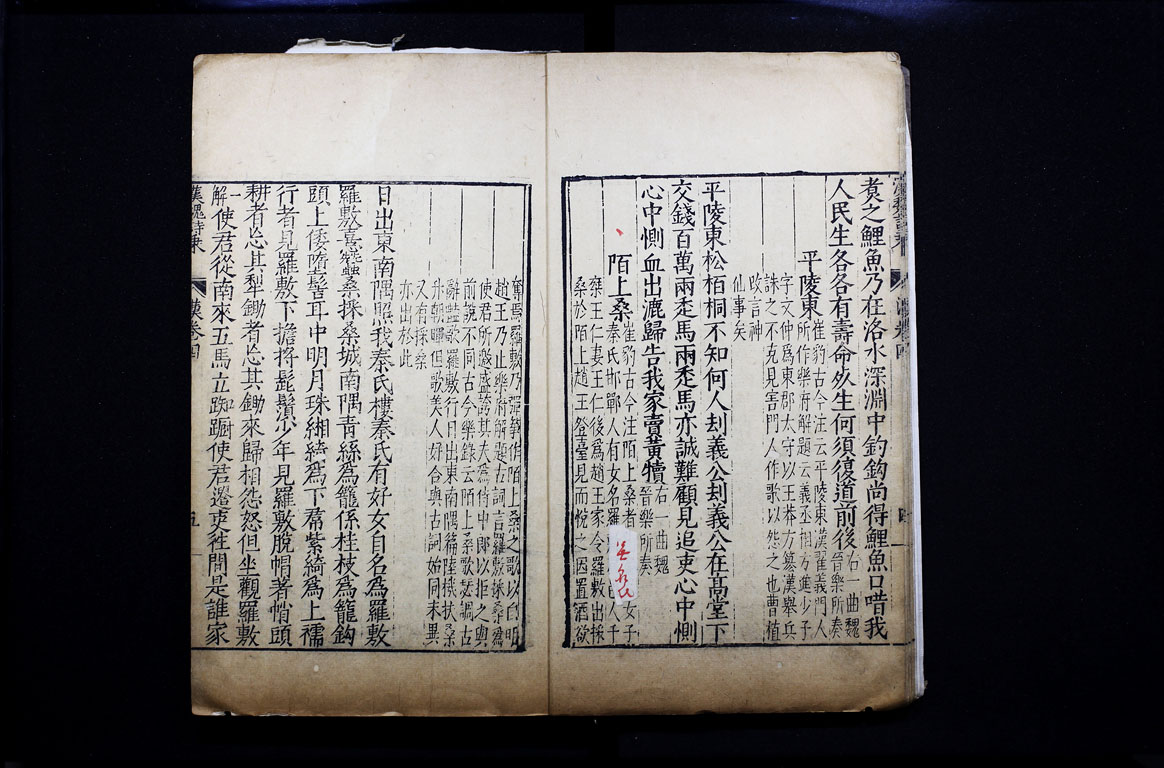 煑之鯉魚乃在洛水深淵中釣鉤尚得鯉魚口唶我
人民生各各有壽命死生何須復道前後
右一曲魏
晉樂所奏
平陵東
崔豹古今注云平陵東漢翟義門人
所作樂府解題云義丞相方進少子
字文仲爲東郡太守以王莽方篡漢舉兵
誅之不克見害門人作歌以怨之也曹植
改言神
仙事矣
平陵東松柏桐不知何人刦義公刦義公在髙堂下
交錢百萬兩走馬兩走馬亦誠難顧見追吏心中惻
心中惻血出漉歸告我家賣黃犢
右一曲魏
晉樂所奏
陌上桑
崔豹古今注陌上桑者女子
秦氏邯鄲人有女名羅人千
桒王仁妻王仁後爲趙王家令羅敷出採
桑於陌上趙王登臺見而悅之因置酒欲
奪焉羅敷乃彈箏作陌上桑之歌以自明
趙王乃止樂府解題古詞言羅敷採桑爲
使君所邀盛誇其夫爲侍中郎以拒之與
前說不同古今樂錄云陌上桑歌瑟調古
辭豔歌羅敷行日出東南隅篇陸機扶桑
升朝暉但歌美人好合與古詞始同末異
又有採桑
亦出於此
日出東南隅照我秦氏樓秦氏有好女自名爲羅敷
羅敷憙蠶桑採桑城南隅青絲爲籠係桂枝爲籠鉤
頭上倭墮髻耳中明月珠緗綺爲下帬紫綺爲上襦
行者見羅敷下擔捋髭鬚少年見羅敷脫帽著帩頭
耕者忘其犁鋤者忘其鋤來歸相怨怒但坐觀羅敷
一解
使君從南來五馬立踟蹰使君遣吏往問是誰家
漢魏詩乘
漢卷四
五